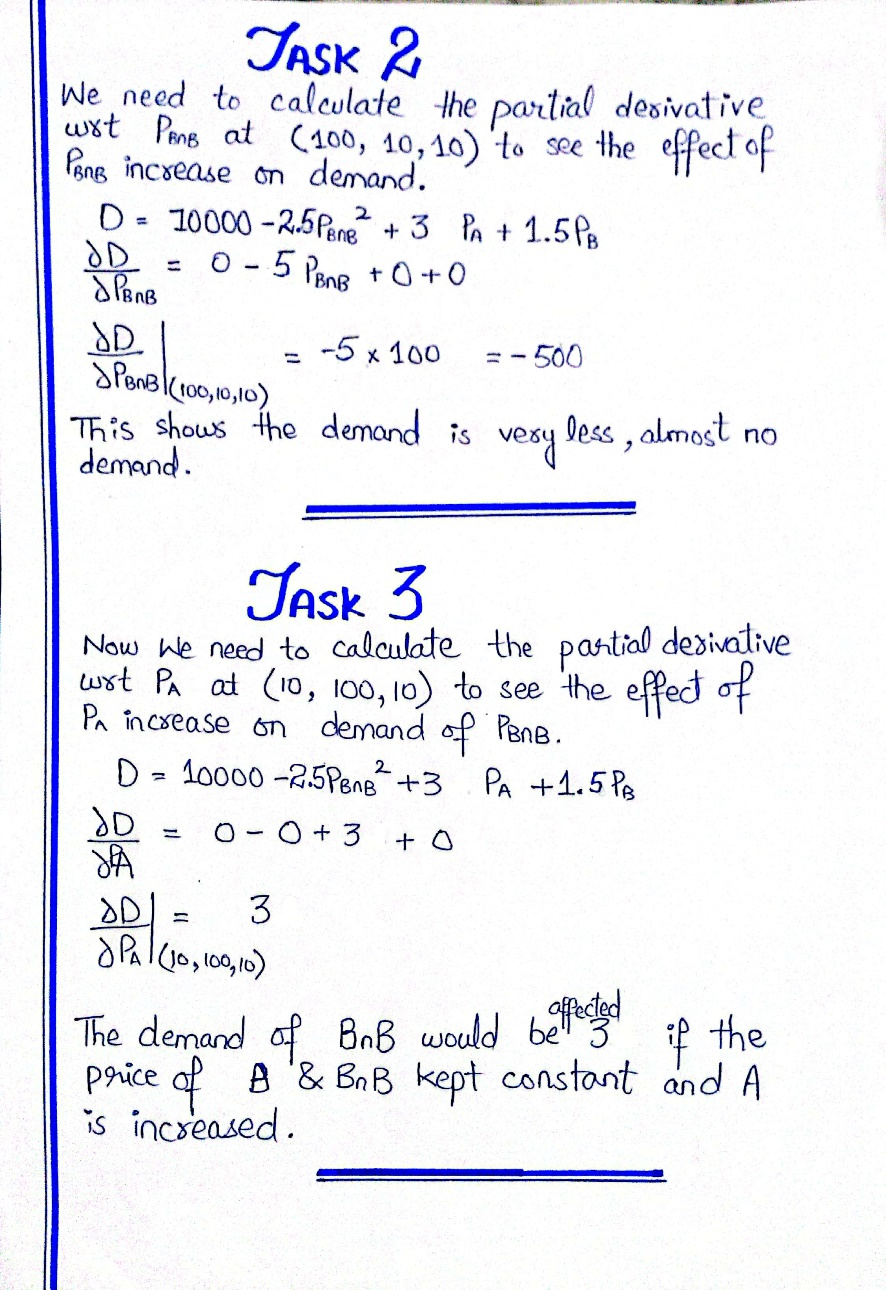 TASK 2
We need to calculate the partial derivative
wrt PBnB at (100, 10, 10) to see the effect of
PBnB increase on demand.
D = 10000 - 2.5PBnB² + 3 PA + 1.5PB
∂D/∂PBnB = 0 - 5 PBnB + 0 + 0
∂D/∂PBnB|(100,10,10) = -5 x 100 = -500
This shows the demand is very less, almost no
demand.
TASK 3
Now We need to calculate the partial derivative
wrt PA at (10, 100, 10) to see the effect of
PA increase on demand of PBnB.
D = 10000 - 2.5PBnB² + 3 PA + 1.5PB
∂D/∂PA = 0 - 0 + 3 + 0
∂D/∂PA|(10,100,10) = 3
The demand of BnB would be affected 3 if the
price of B & BnB kept constant and A
is increased.